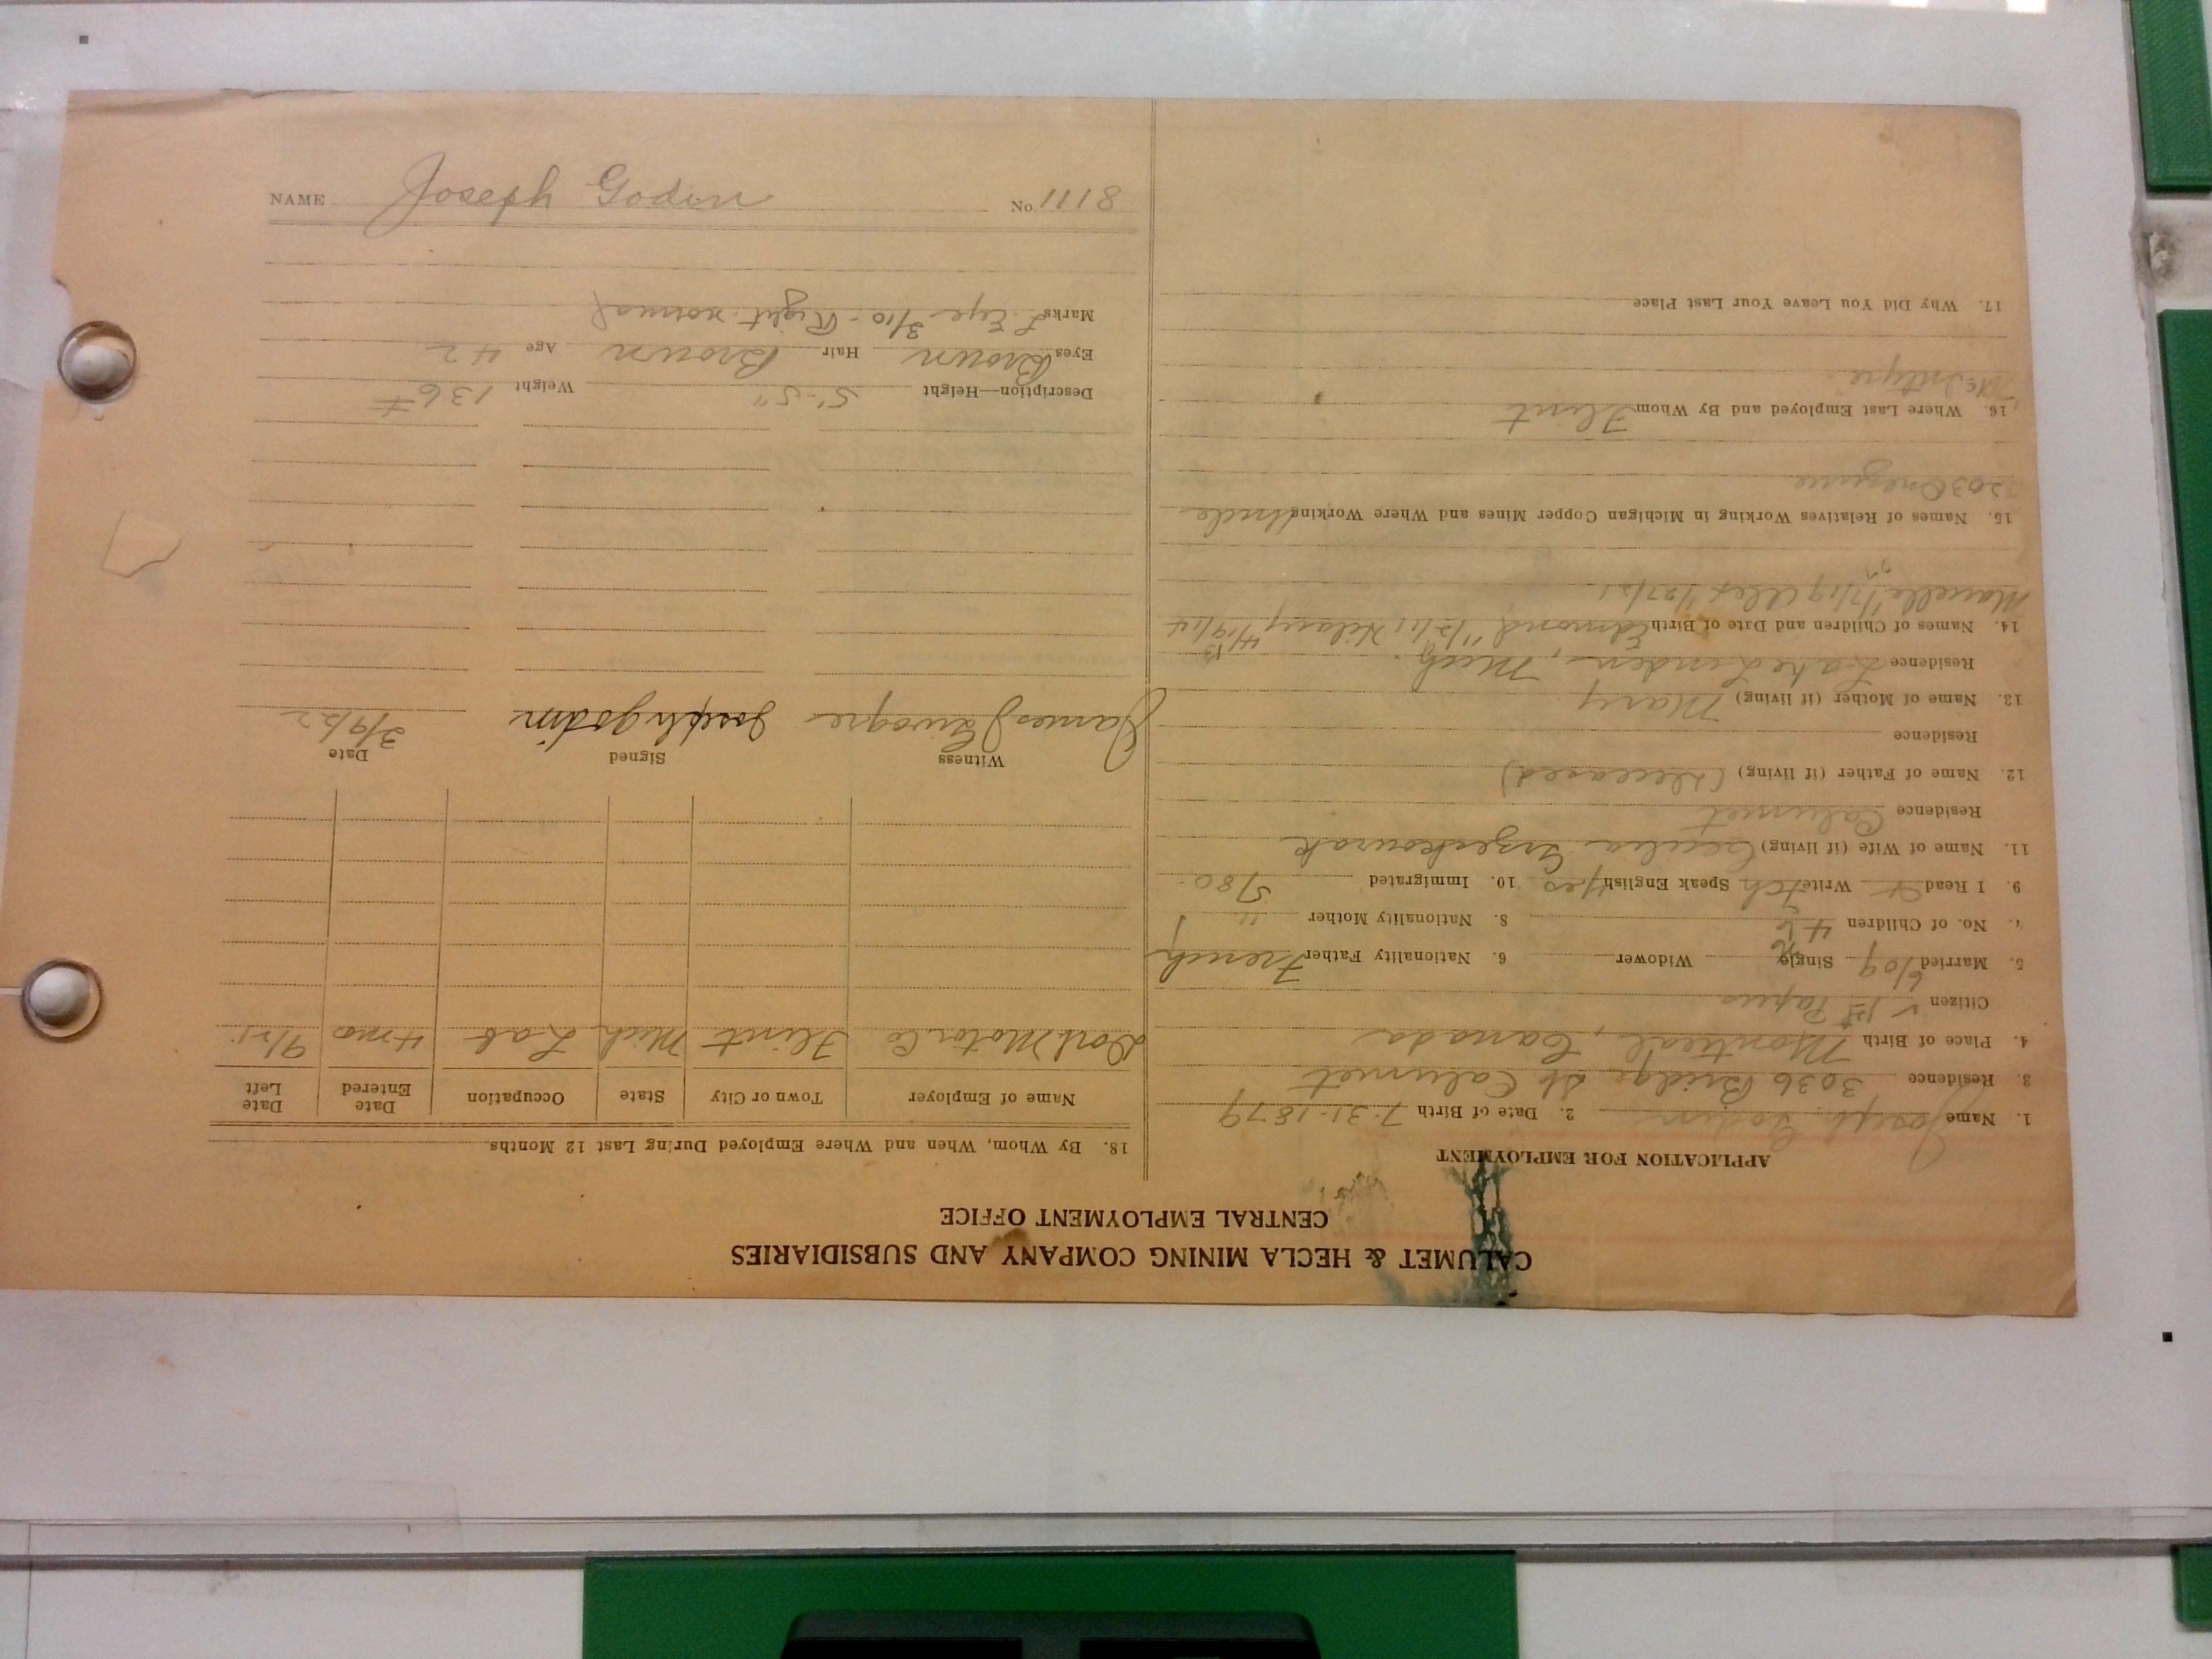 CALUMET & HECLA MINING COMPANY AND SUBSIDIARIES
CENTRAL EMPLOYMENT OFFICE
APPLICATION FOR EMPLOYMENT
1. Name Joseph Godin 2. Date of Birth 7-31-1879
3. Residence 3036 Bridge St Calumet
4. Place of Birth Montreal, Canada
Citizen 1st Papers
5. Married 6/09 Single Widower 6. Nationality Father French
7. No. of Children 4 8. Nationality Mother "
9. I Read Write Speak English yes 10. Immigrated 5/80
11. Name of Wife (if living) Cecelia
Residence Calumet
12. Name of Father (if living) (deceased)
Residence
13. Name of Mother (if living) Mary
Residence Lake Linden, Mich.
14. Names of Children and Date of Birth Edmond Hilary
Marcelle Alex 1/27/21
15. Names of Relatives Working in Michigan Copper Mines and Where Working Uncle
16. Where Last Employed and By Whom Flint
McIntyre
17. Why Did You Leave Your Last Place
18. By Whom, When and Where Employed During Last 12 Months
Name of Employer Town or City State Occupation Date Entered Date Left
Dort Motor Co Flint Mich Lab 4 mos 9/21
Witness Signed Date
James Joseph godin 3/9/22
Description—Height 5'-5" Weight 136 #
Eyes Brown Hair Brown Age 42
Marks L. Eye 3/10 - Right normal
NAME Joseph Godin No. 8111